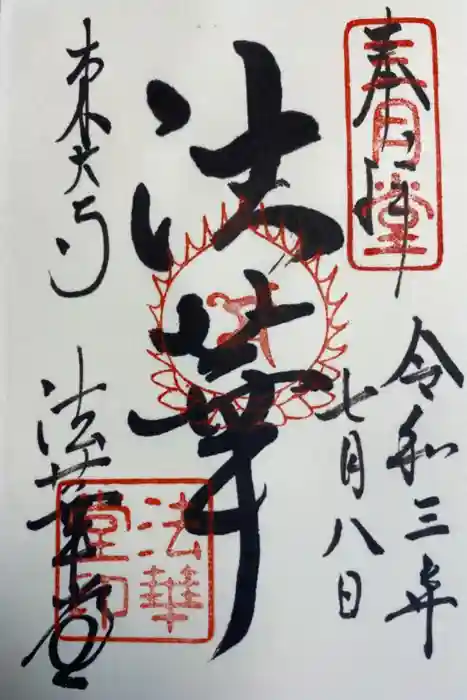 奉拝
三月堂
令和三年
七月八日
法華
東大寺
法華堂
法華
堂印